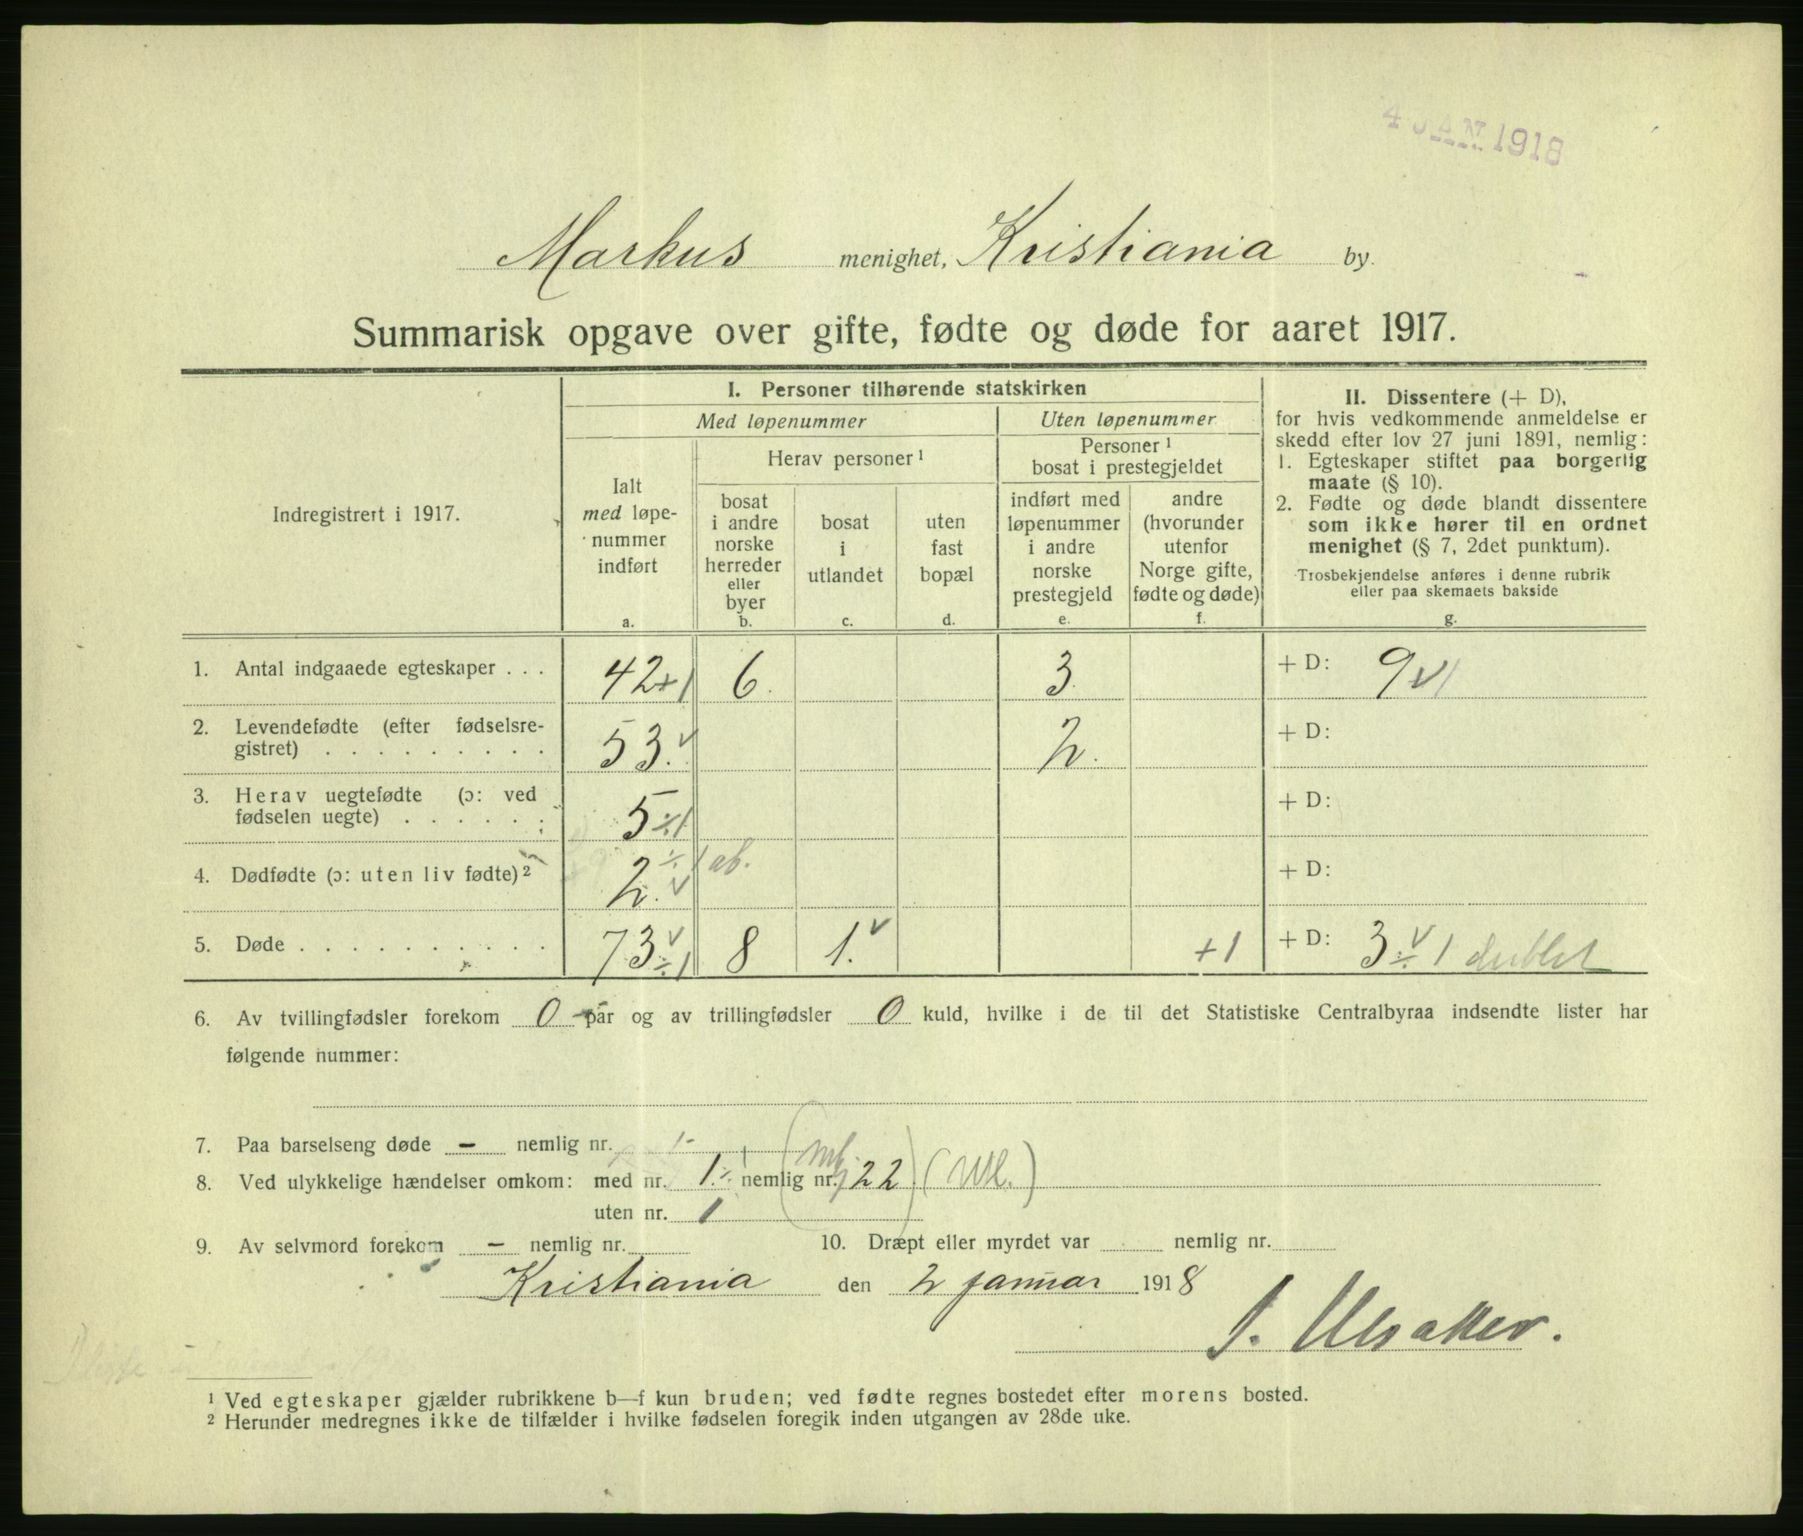 4 JAN 1918
Markus menighet, Kristiania by.
Summarisk opgave over gifte, fødte og døde for aaret 1917.
Indregistrert i 1917.
I. Personer tilhørende statskirken
Med løpenummer
Uten løpenummer
Ialt
med løpe-
nummer
indført
a.
Herav personer 1
bosat
i andre
norske
herreder
eller
byer
b.
bosat
i
utlandet
c.
uten
fast
bopæl
d.
Personer 1
bosat i prestegjeldet
indført med
løpenummer
i andre
norske
prestegjeld
e.
andre
(hvorunder
utenfor
Norge gifte,
fødte og døde)
f.
II. Dissentere (+ D),
for hvis vedkommende anmeldelse er
skedd efter lov 27 juni 1891, nemlig:
1. Egteskaper stiftet paa borgerlig
maate (§ 10).
2. Fødte og døde blandt dissentere
som ikke hører til en ordnet
menighet (§ 7, 2det punktum).
Trosbekjendelse anføres i denne rubrik
eller paa skemaets bakside
g.
1. Antal indgaaede egteskaper . . . 42 +1 6. 3. + D: 9
2. Levendefødte (efter fødselsre-
gistret) . . . . . . . . . 53. v 2. + D:
3. Herav uegtefødte (ɔ: ved
fødselen uegte) . . . . . . 5 ÷1 + D:
4. Dødfødte (ɔ: uten liv fødte) 2 2. v ÷1 ab. + D:
5. Døde . . . . . . . . . . 73 v ÷1 8 1. v +1 + D: 3 v ÷ 1 dublet
6. Av tvillingfødsler forekom 0 par og av trillingfødsler 0 kuld, hvilke i de til det Statistiske Centralbyraa indsendte lister har
følgende nummer:
7. Paa barselseng døde – nemlig nr.
8. Ved ulykkelige hændelser omkom: med nr. 1. ÷1 nemlig nr. 22
uten nr. 1
9. Av selvmord forekom – nemlig nr. 10. Dræpt eller myrdet var nemlig nr.
Kristiania den 2 januar 1918
J. Ulsaker.
1 Ved egteskaper gjælder rubrikkene b—f kun bruden; ved fødte regnes bostedet efter morens bosted.
2 Herunder medregnes ikke de tilfælder i hvilke fødselen foregik inden utgangen av 28de uke.